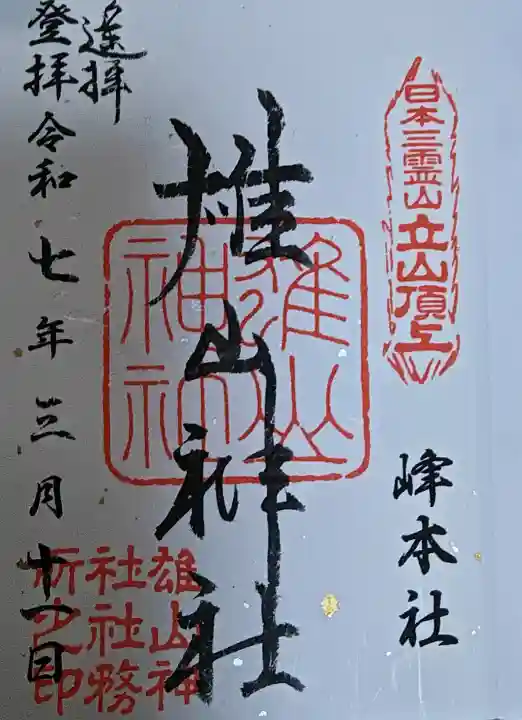 日本三霊山立山頂上
峰本社
雄山神社
雄山神社
雄山神
社社務
所之印
遙拝
登拝 令和七年三月十一日